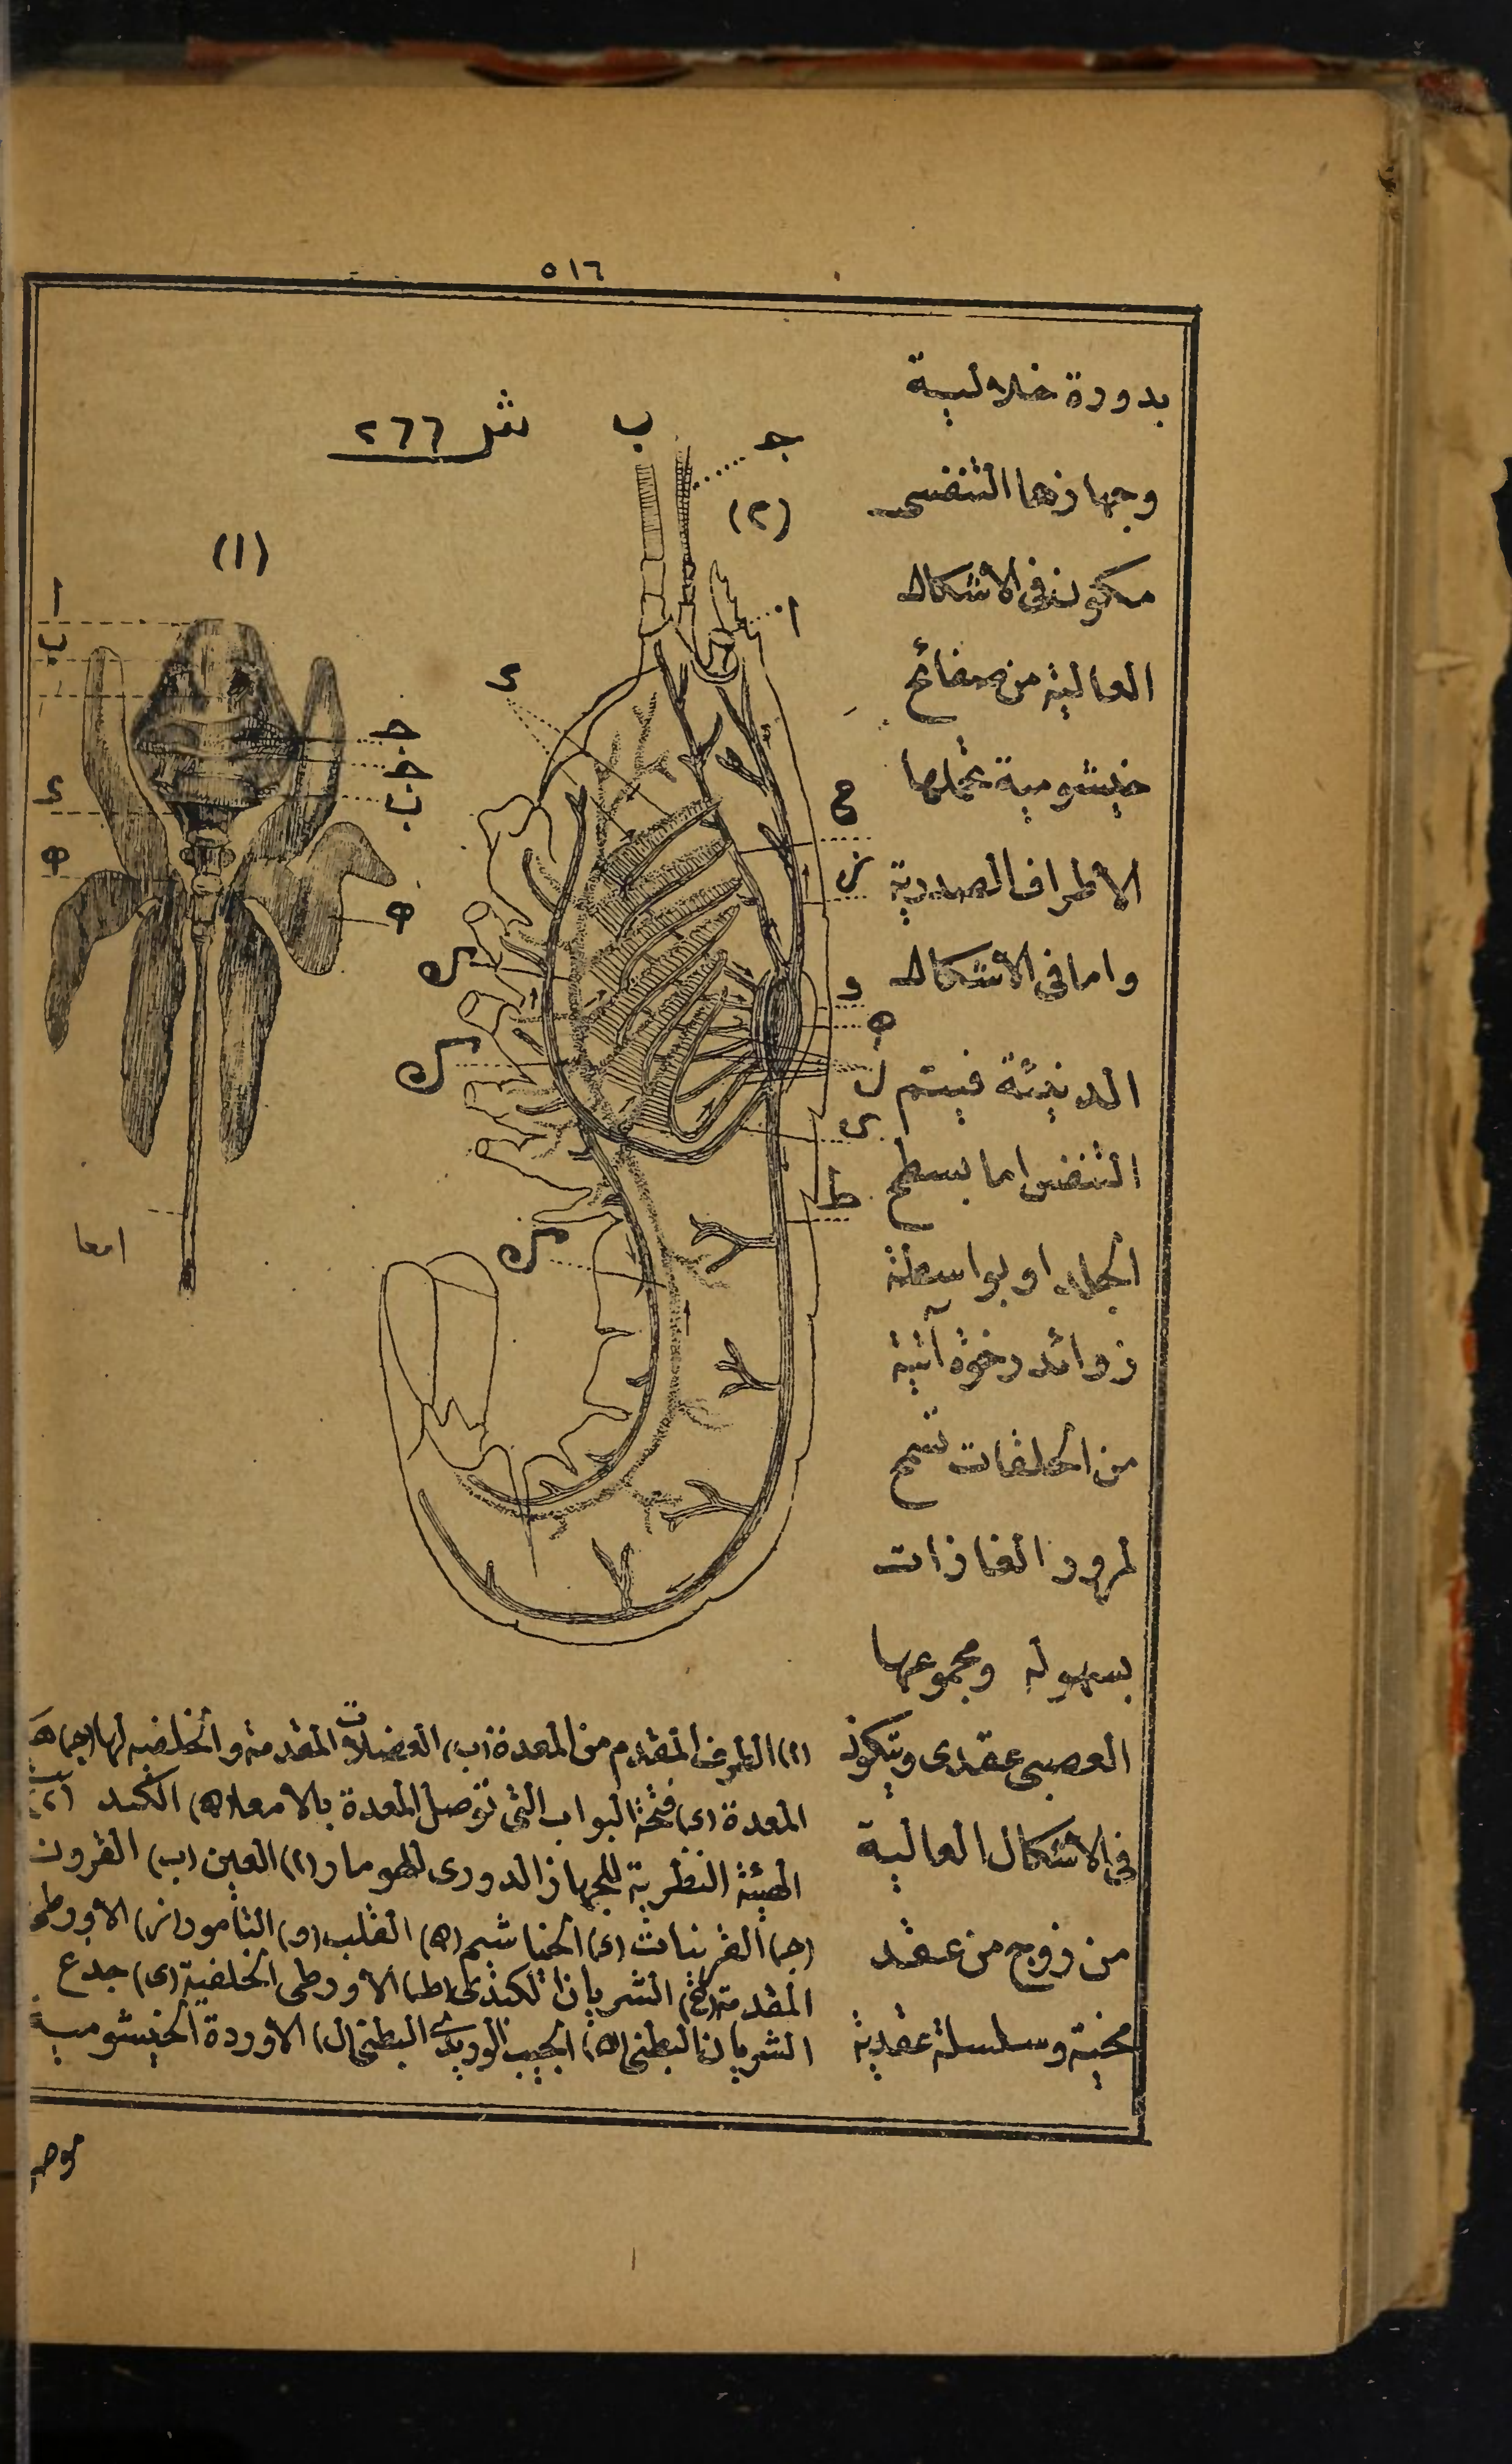 ٥١٦
بدورة خلالية
وجهازها التنفسى
مكون فى الاشكال
العالية من صفائح
خيشومية تحملها
الاطراف الصدرية
واما فى الاشكال
الدنيئة فيتم
التنفس اما بسطح
الجلد او بواسطة
زوائد رخوة آتية
من الحلقات تسمح
لمرور الغازات
بسهوله ومجموعها
العصبى عقدى ويتكون
فى الاشكال العالية
من زوج من عقد
مخية وسلسلة عقدية
ش ٢٦٦
(١)
ا
ب
ج
ج
ب
د
ه
ه
امعا
(٢)
ب
ج
ا
د
ح
ز
و
ه
ل
ى
ط
ك
ك
ك
(ا) الطرف المقدم من المعدة (ب) العضلات المقدمة والخلفيه لها (ج)
المعدة (د) فتحة البواب التى توصل المعدة بالامعا (ه) الكبد (٢)
الهيئة النظرية للجهاز الدورى للهومار (ا) العين (ب) القرون
(ج) القرينات (د) الخياشيم (ه) القلب (و) التامور (ز) الاورطى
المقدمة (ح) الشريان الكبدى (ط) الاورطى الخلفية (ى) جدع
الشريان البطنى (ك) الجيب الوريدى البطنى (ل) الاوردة الخيشومية